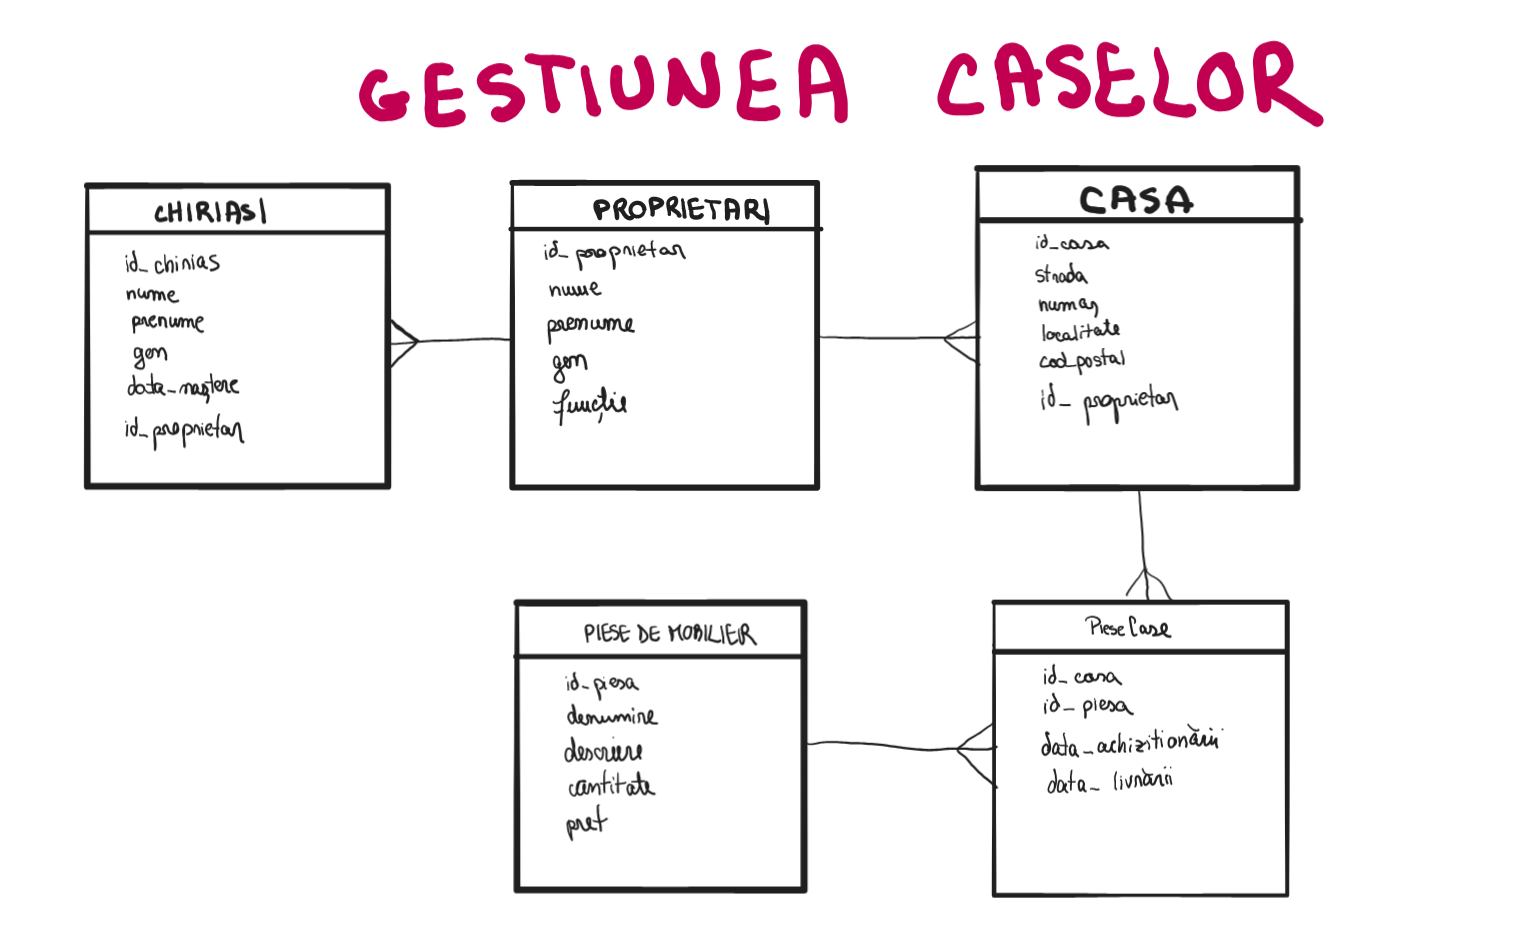 GESTIUNEA CASELOR
CHIRIASI
id_chirias
nume
prenume
gen
data_naştere
id_proprietar
PROPRIETARI
id_proprietar
nume
prenume
gen
funcţie
CASA
id_casa
strada
numar
localitate
cod_postal
id_proprietar
PIESE DE MOBILIER
id_piesa
denumire
descriere
cantitate
pret
Piese Case
id_casa
id_piesa
data_achizitionării
data_livrării